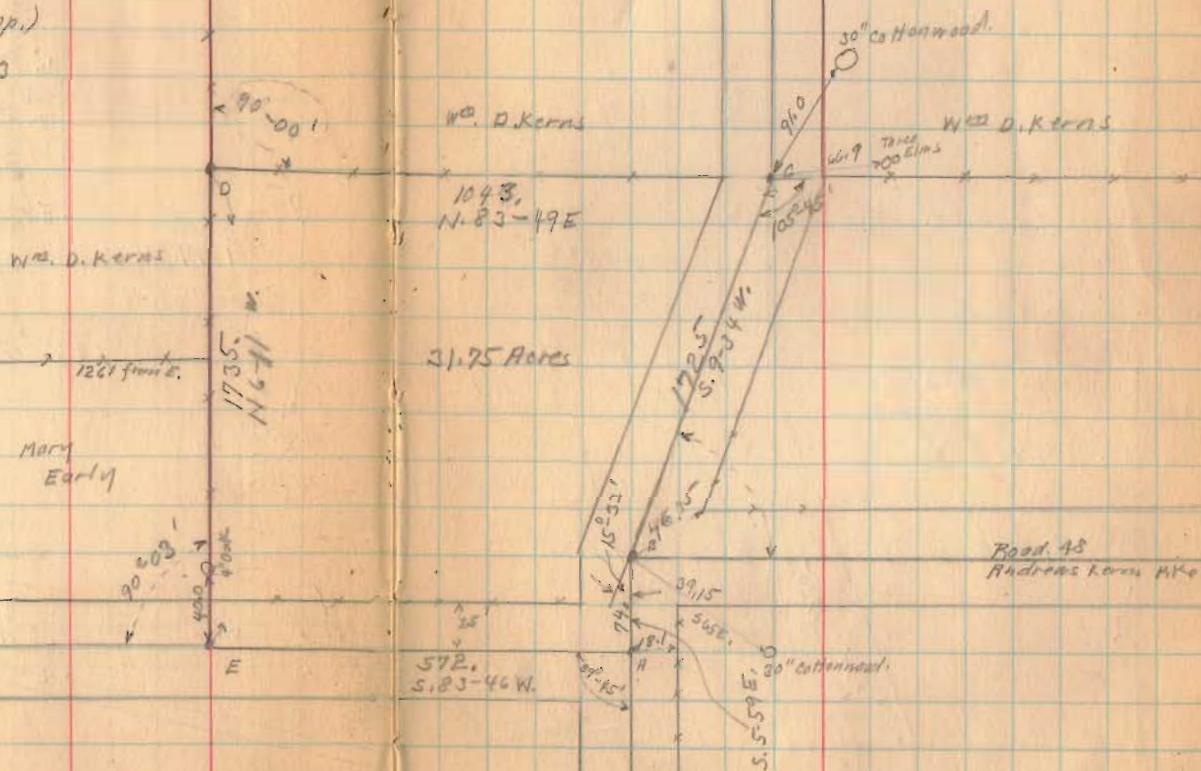 30" Cottonwood.
90°-00'
Wm. D. Kerns
96.0
Wm. D. Kerns
66.9
Three
Elms
D
C
1043.
N. 83-49E
105°45'
Wm. D. Kerns
1735.
N 6-11 W.
31.75 Acres
1725
S. 9-34 W.
1261 from E.
Mary
Early
15°-32'
90°03'
Road. 48
Andrews Kerns
39.15
74.
18.1
S65E.
E
A
572.
S. 83-46 W.
30" Cottonwood.
S. 5-59 E.